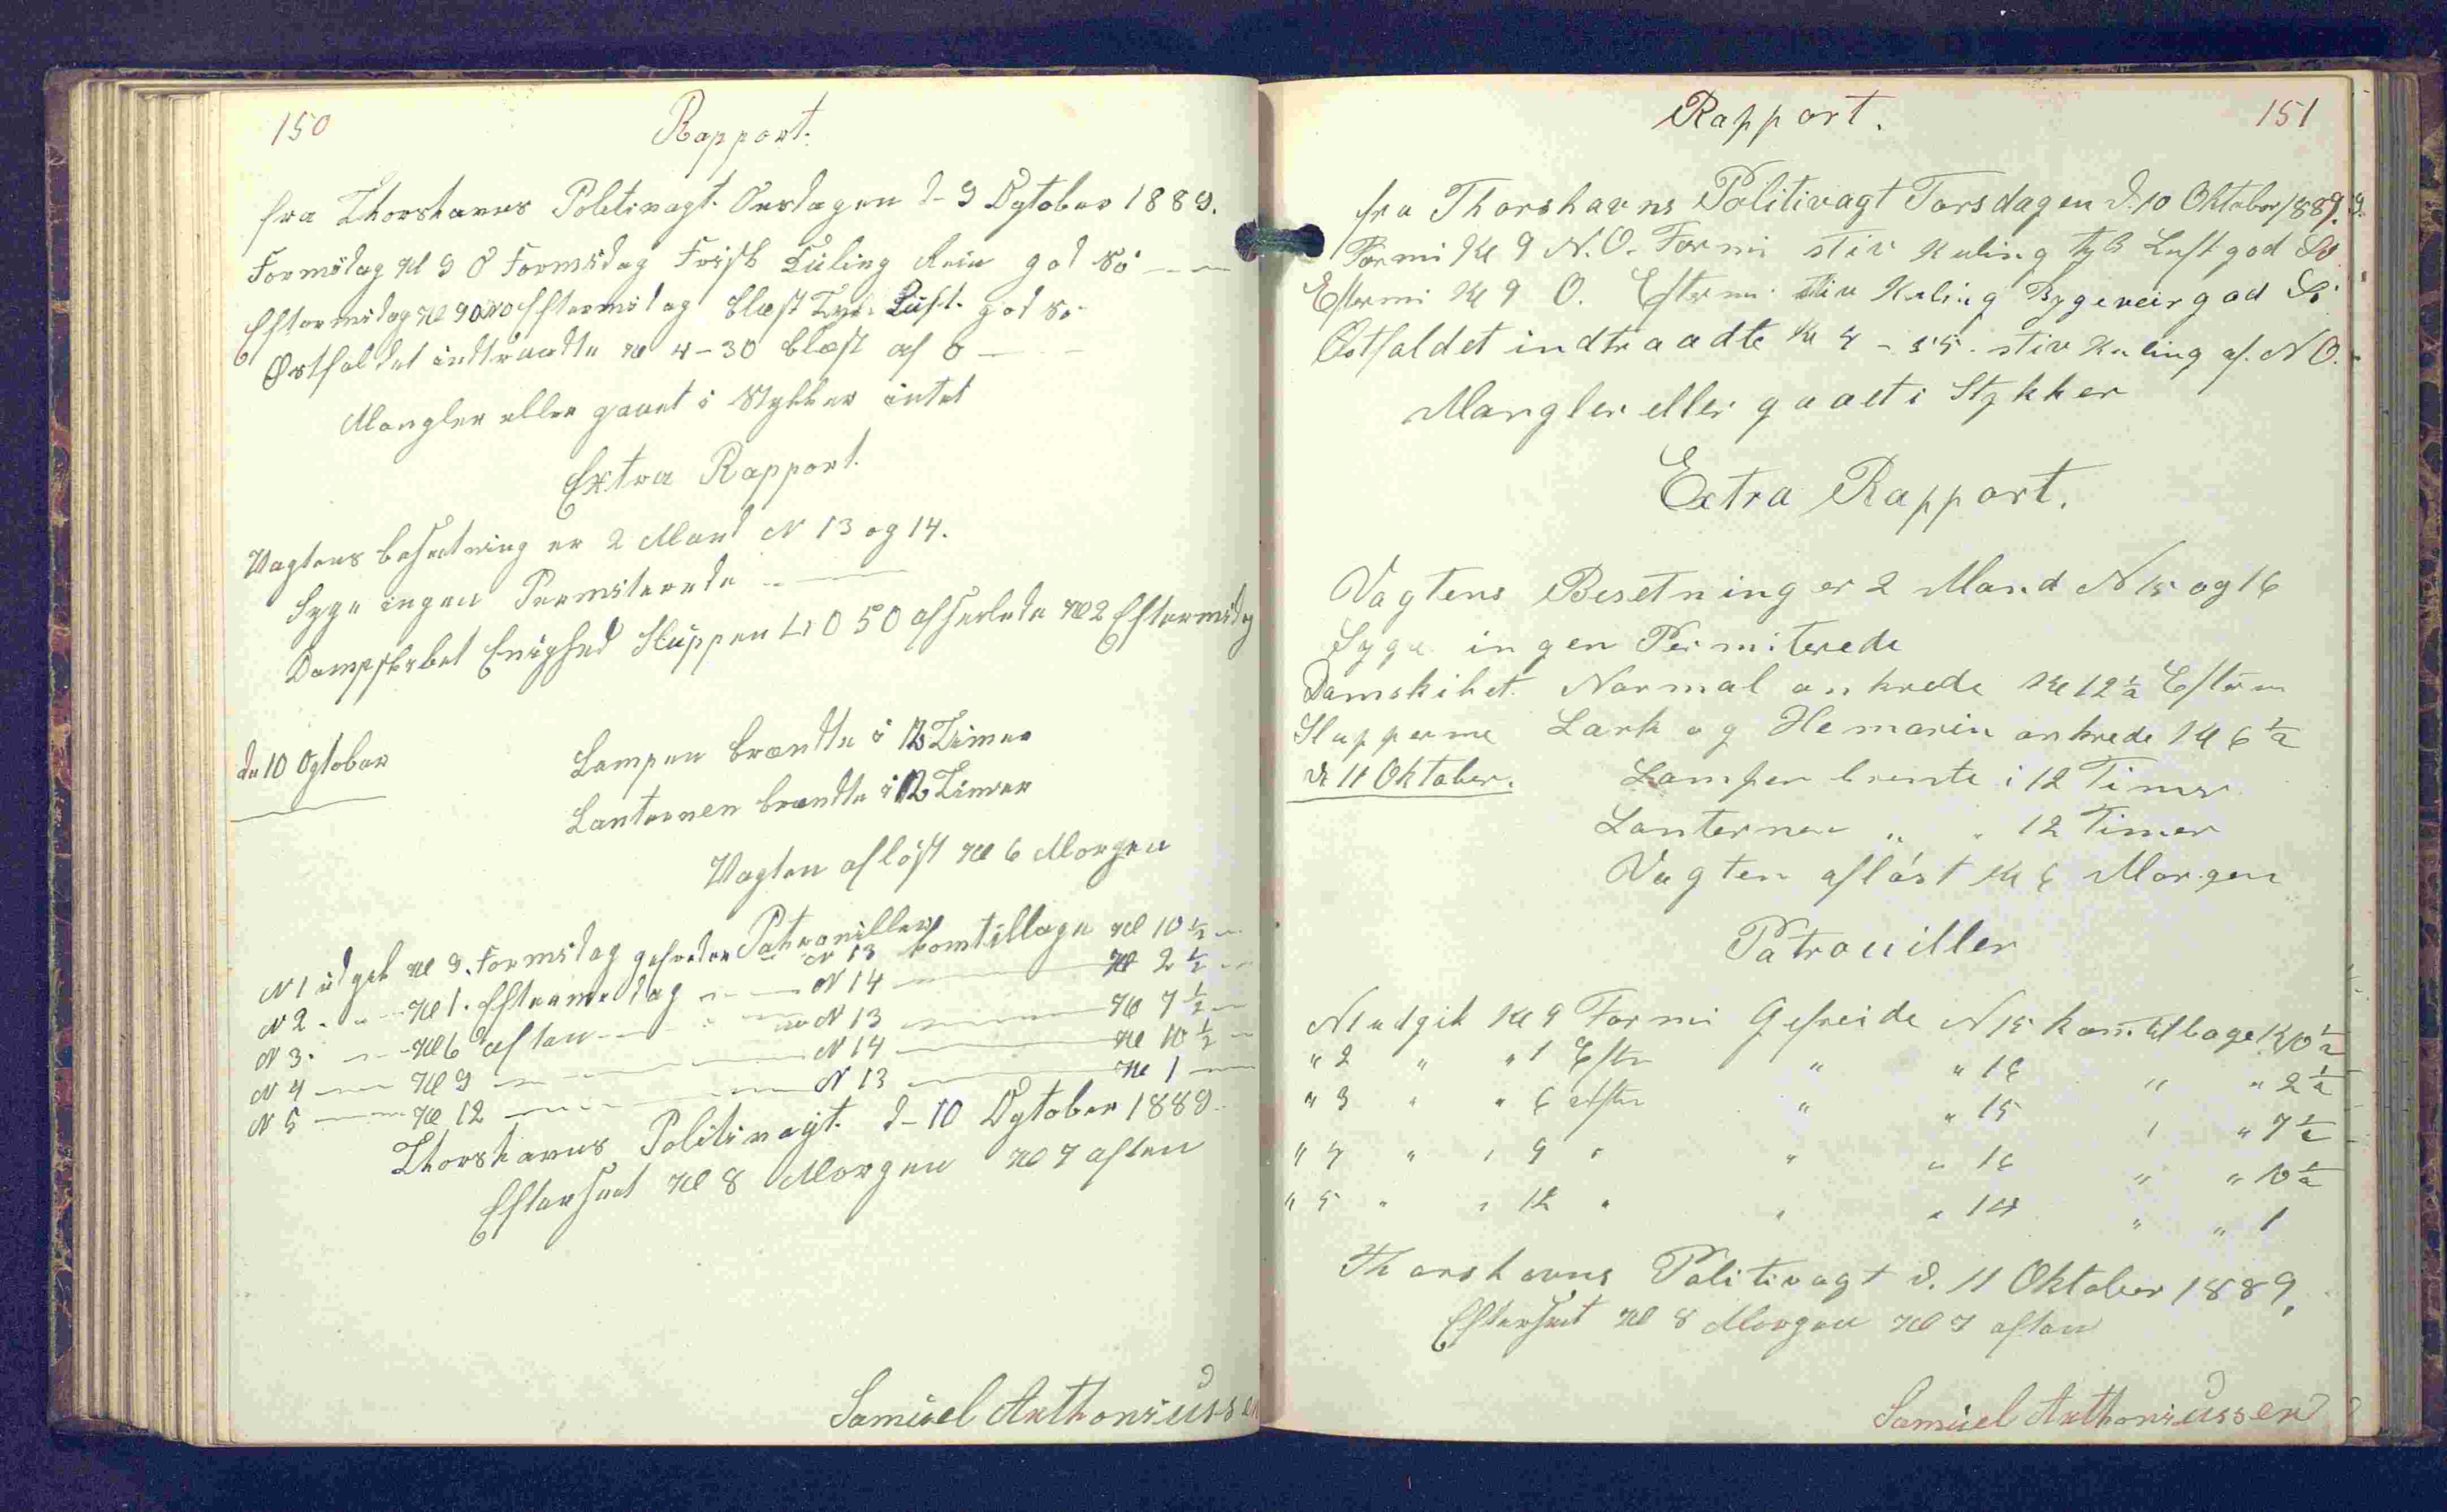 150
Rapport.
fra Thorshavns Politivagt. Onsdagen d-9 Ogtober 1889.
Formidag Kl 9 O Formidag Frisk Kuling Rein god Sö
Eftermidag Kl 9 ONO Eftermidag blæst Tyk Luft god Sö
Østfaldet indtraadte Kl 4-30 blæst af O
Mangler eller gaaet i Stykker intet
Extra Rapport.
Vagtens besætning er 2 Mand N 13 og 14.
Syge ingen Permiterede
Dampskibet Enighed Sluppen L1050 afseilede Kl 2 Eftermidag
d 10 Ogtober
Lampen brændte i 12 Timer
Lanternen brændte i 12 Timer
Vagten afløst Kl 6 Morgen
Patrouiller
N 1 udgik Kl 9. Formidag gefreder N 13 kom tilbage Kl 10 1/2
N 2 " " Kl 1. Eftermidag N 14 Kl 2 1/2
N 3 " " Kl 6 aften N 13 Kl 7 1/2
N 4 Kl 9 N 14 Kl 10 1/2
N 5 Kl 12 N 13 Kl 1
Thorshavns Politivagt. d-10 Ogtober 1889.
Efterseet Kl 8 Morgen Kl 7 aften
Samuel Anthoniussen
Rapport.
151
fra Thorshavns Politivagt Torsdagen d. 10 Oktober 1889.
Formi Kl 9 N.O. Formi stiv Kuling tyk Luft god Sö
Eftermi Kl 9 O. Eftermi stiv Kuling Bygeveir god Sö
Østfaldet indtraadte Kl 4-55. stiv Kuling af. NO.
Mangler eller gaaet i Stykker
Extra Rapport.
Vagtens Besetning er 2 Mand N 15 og 16
Syge ingen Permiterede
Damskibet. Normal ankrede Kl 12 1/2 Efterm
Slupperne Lark og Hemanin ankrede Kl 6 1/2
d. 11 Oktober.
Lampen brente i 12 Timer
Lanternen " " 12 Timer
Vagten afløst Kl 6 Morgen
Patrouiller
N 1 udgik Kl 9 Formi Gefreide N 15 kom tilbage Kl 10 1/2
" 2 " " 1 Efter " " 16 " " 2 1/2
" 3 " " 6 efter " " 15 " " 7 1/2
" 4 " " 9 " " " 16 " " 10 1/2
" 5 " " 12 " " " 14 " " 1
Thorshavns Politivagt d. 11 Oktober 1889.
Efterseet Kl 8 Morgen Kl 7 aften
Samuel Anthoniussen